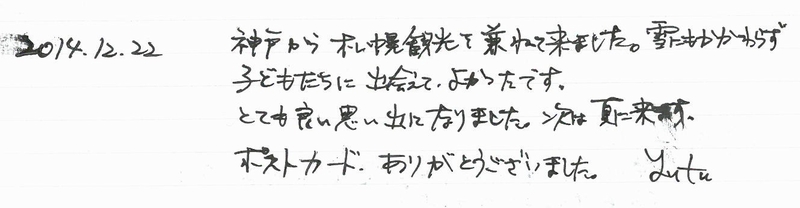 2014.12.22 神戸から 札幌観光を兼ねて来ました。雪にもかかわらず
子どもたちに 出会えて、よかったです。
とても良い思い出になりました。次は 夏に来ます。
ポストカード、ありがとうございました。 Yutu